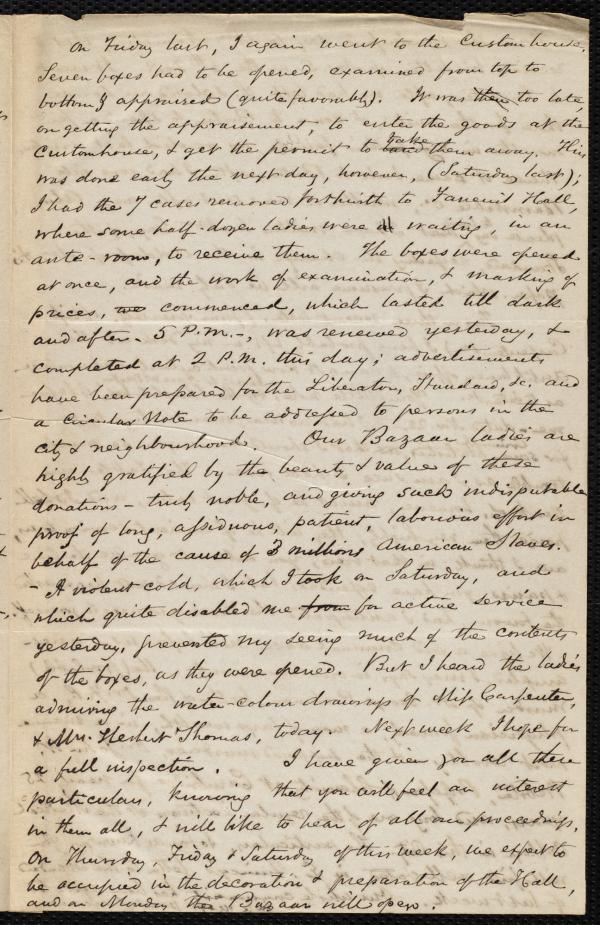 On Friday last, I again went to the Customhouse.
Seven boxes had to be opened, examined from top to
bottom, & appraised (quite favorably). It was then too late,
on getting the appraisement, to enter the goods at the
Customhouse, & get the permit to take them away. This
was done early the next day, however, (Saturday last);
I had the 7 cases removed forthwith to Faneuil Hall,
where some half-dozen ladies were waiting, in an
ante-room, to receive them. The boxes were opened
at once, and the work of examination, & marking of
prices, commenced, which lasted till dark
and after - 5 P.M. -, was renewed yesterday, &
completed at 2 P.M. this day; advertisements
have been prepared for the Liberator, Standard, &c. and
a Circular Note to be addressed to persons in the
city & neighbourhood. Our Bazaar ladies are
highly gratified by the beauty & value of these
donations - truly noble, and giving such indisputable
proof of long, assiduous, patient, laborious effort in
behalf of the cause of 3 millions American Slaves.
- A violent cold, which I took on Saturday, and
which quite disabled me from for active service
yesterday, prevented my seeing much of the contents
of the boxes, as they were opened. But I heard the ladies
admiring the water-colour drawings of Miss Carpenter,
& Mrs. Herbert Thomas, today. Next week I hope for
a full inspection. I have given you all these
particulars, knowing that you will feel an interest
in them all, & will like to hear of all our proceedings.
On Thursday, Friday & Saturday of this week, we expect to
be occupied in the decoration & preparation of the Hall,
and on Monday the Bazaar will open.